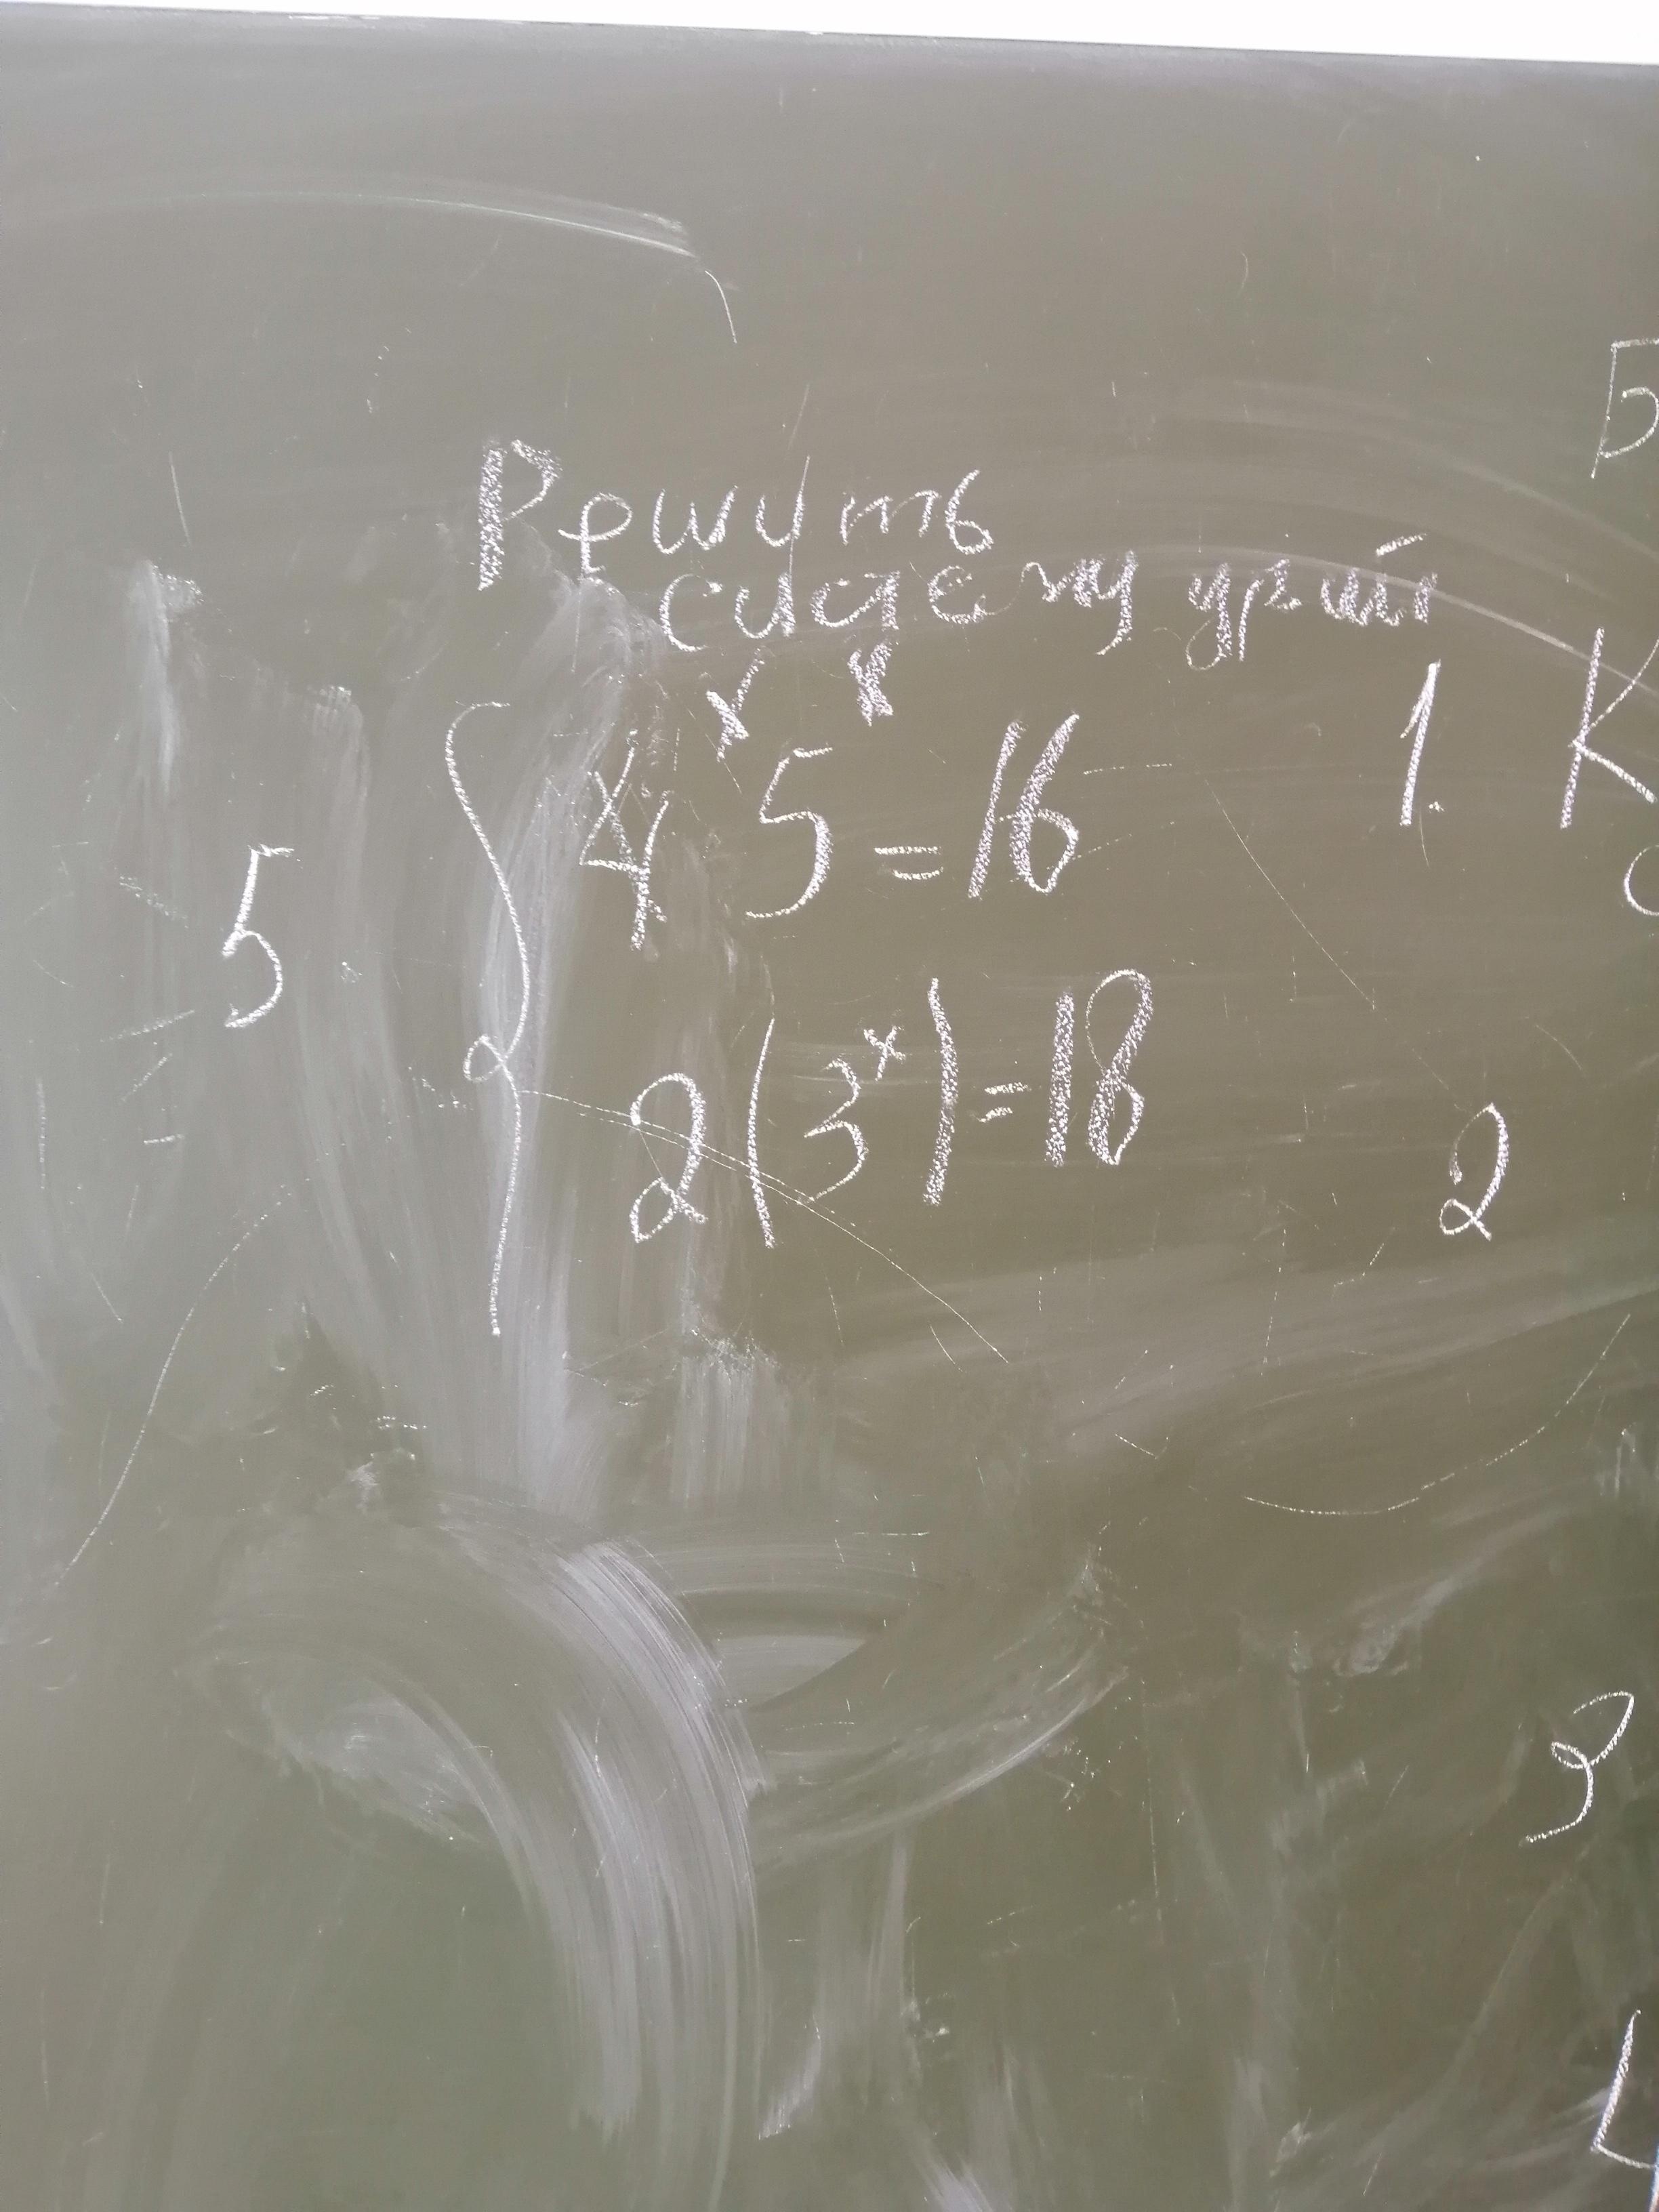 Решить
систему ур-ий
5. { 4ˣ 5ˣ = 16
2(3ˣ) = 18
Б
1. К
2
3